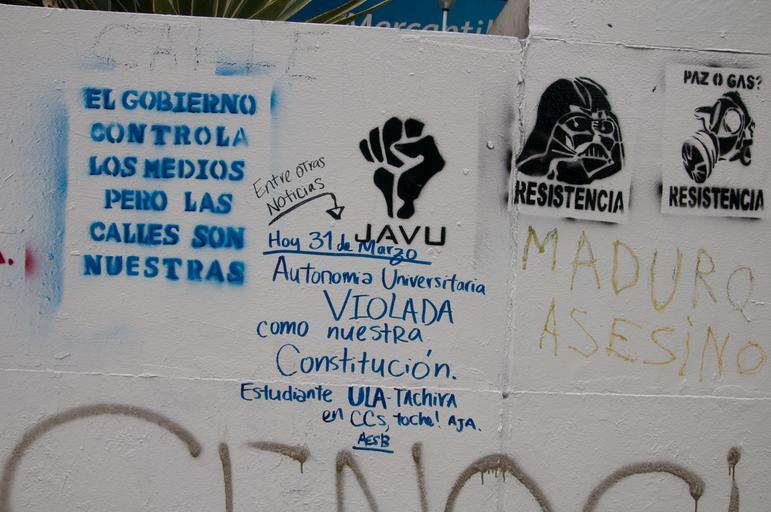 Mercantil
CALLE
EL GOBIERNO
CONTROLA
LOS MEDIOS
PERO LAS
CALLES SON
NUESTRAS
Entre otras
Noticias
JAVU
Hoy 31 de Marzo
Autonomia Universitaria
VIOLADA
como nuestra
Constitución.
Estudiante ULA-TACHIRA
en CCs, toche! AJA.
AESB
RESISTENCIA
PAZ O GAS?
RESISTENCIA
MADURO
ASESINO